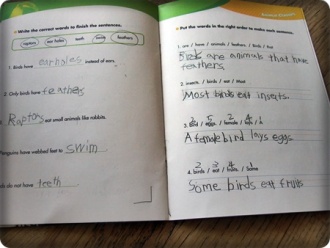 Write the correct words to finish the sentences.
raptors ear holes teeth swim feathers
1. Birds have earholes instead of ears.
2. Only birds have feather
Raptors eat small animals like rabbits.
Penguins have webbed feet to swim
ds do not have teeth
Put the words in the right order to make each sentence.
1. are / have / animals / feathers / Birds / that
Birds are animals that have
feathers.
2. insects / birds / eat / Most
Most birds eat insects.
A female bird lays eggs
2 3 4 1
4. birds / eat / fruits / Some
Some birds eat fruits